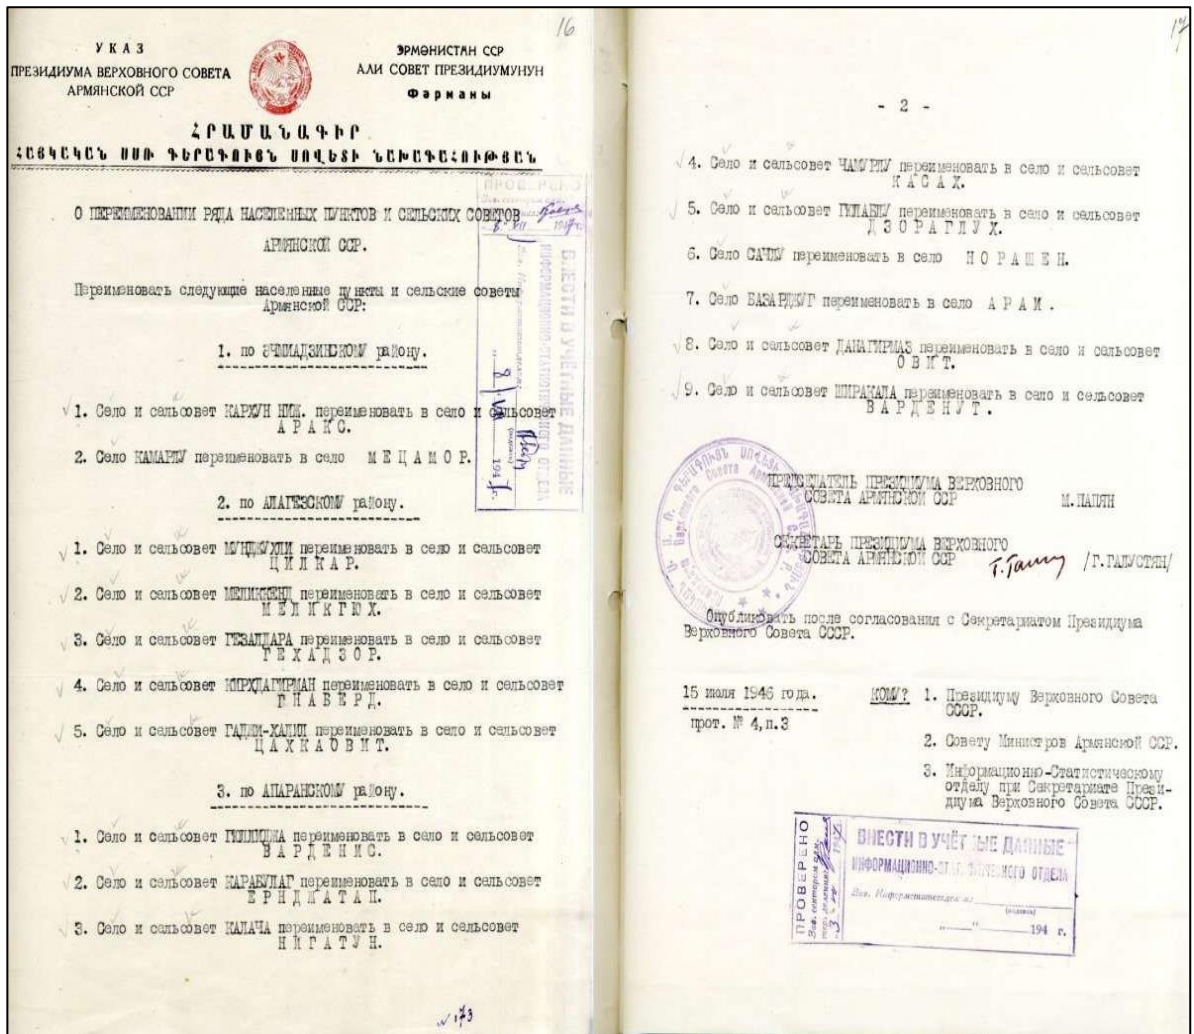 16
УКАЗ
ПРЕЗИДИУМА ВЕРХОВНОГО СОВЕТА
АРМЯНСКОЙ ССР
ЭРМӘНИСТАН ССР
АЛИ СОВЕТ ПРЕЗИДИУМУНУН
Фәрманы
ՀՐԱՄԱՆԱԳԻՐ
ՀԱՅԿԱԿԱՆ ՍՍՌ ԳԵՐԱԳՈՒՅՆ ՍՈՎԵՏԻ ՆԱԽԱԳԱՀՈՒԹՅԱՆ
О ПЕРЕИМЕНОВАНИИ РЯДА НАСЕЛЕННЫХ ПУНКТОВ И СЕЛЬСКИХ СОВЕТОВ
АРМЯНСКОЙ ССР.
Переименовать следующие населенные пункты и сельские советы
Армянской ССР:
1. по ЭЧМИАДЗИНСКОМУ району.
1. Село и сельсовет КАРХУН НИЖ. переименовать в село и сельсовет
АРАКС.
2. Село КАМАРЛУ переименовать в село МЕЦАМОР.
2. по АЛАГЕЗСКОМУ району.
1. Село и сельсовет МУНДЖУХЛИ переименовать в село и сельсовет
ЦИЛКАР.
2. Село и сельсовет МЕЛИККЕНД переименовать в село и сельсовет
МЕЛИКГЮХ.
3. Село и сельсовет ГЕЗАЛДАРА переименовать в село и сельсовет
ГЕХАДЗОР.
4. Село и сельсовет КИРХДАГИРМАН переименовать в село и сельсовет
ГНАБЕРД.
5. Село и сельсовет ГАДЖИ-ХАЛИЛ переименовать в село и сельсовет
ЦАХКАОВИТ.
3. по АПАРАНСКОМУ району.
1. Село и сельсовет ГЮЛЛИДЖА переименовать в село и сельсовет
ВАРДЕНИС.
2. Село и сельсовет КАРАБУЛАГ переименовать в село и сельсовет
ЕРНДЖАТАП.
3. Село и сельсовет КАЛАЧА переименовать в село и сельсовет
НИГАТУН.
173
ПРОВЕРЕНО
8 XII 1947 г.
ВНЕСТИ В УЧЁТНЫЕ ДАННЫЕ
ИНФОРМАЦИОННО-СТАТИСТИЧЕСКОГО ОТДЕЛА
17
- 2 -
4. Село и сельсовет ЧАМУРЛУ переименовать в село и сельсовет
КАСАХ.
5. Село и сельсовет ГЮЛАБЛУ переименовать в село и сельсовет
ДЗОРАГЛУХ.
6. Село САЧЛУ переименовать в село НОРАШЕН.
7. Село БАЗАРДЖУГ переименовать в село АРАМ.
8. Село и сельсовет ДАНАГИРМАЗ переименовать в село и сельсовет
ОВИТ.
9. Село и сельсовет ШИРАКАЛА переименовать в село и сельсовет
ВАРДЕНУТ.
ПРЕДСЕДАТЕЛЬ ПРЕЗИДИУМА ВЕРХОВНОГО
СОВЕТА АРМЯНСКОЙ ССР М.ПАПЯН
СЕКРЕТАРЬ ПРЕЗИДИУМА ВЕРХОВНОГО
СОВЕТА АРМЯНСКОЙ ССР /Г.ГАЛУСТЯН/
Опубликовать после согласования с Секретариатом Президиума
Верховного Совета СССР.
15 июля 1946 года.
прот. № 4,п.3
КОМУ? 1. Президиуму Верховного Совета
СССР.
2. Совету Министров Армянской ССР.
3. Информационно-Статистическому
отделу при Секретариате Прези-
диума Верховного Совета СССР.
ПРОВЕРЕНО
ВНЕСТИ В УЧЁТНЫЕ ДАННЫЕ
ИНФОРМАЦИОННО-СТАТИСТИЧЕСКОГО ОТДЕЛА
(подпись)
194 г.